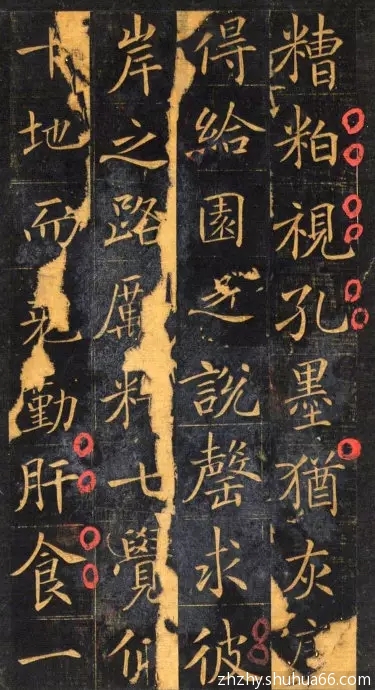 糟粕視孔墨猶灰
得給園之說罄求彼
岸之路厲七覺仰
十地而克勤肝食一
zhzhy.shuhua66.com